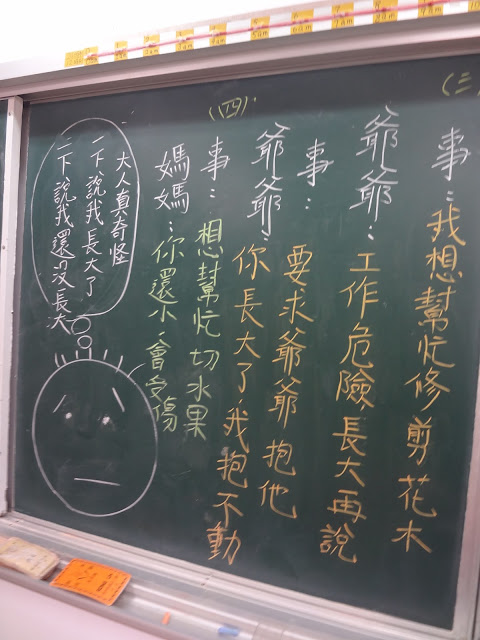 (三
事：我想幫忙修剪花木
爺爺：工作危險，長大再說
事：要求爺爺抱他
爺爺：你長大了，我抱不動
(四)
事：想幫忙切水果
媽媽：你還小，會受傷
大人真奇怪
一下說我長大了
一下說我還沒長大